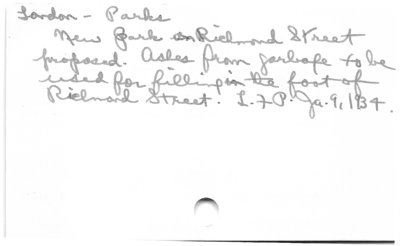 London - Parks
New Park on Richmond Street
proposed. Ashes from garbage to be
used for filling in the foot of
Richmond Street. L.F.P. Ja. 9, 1934.